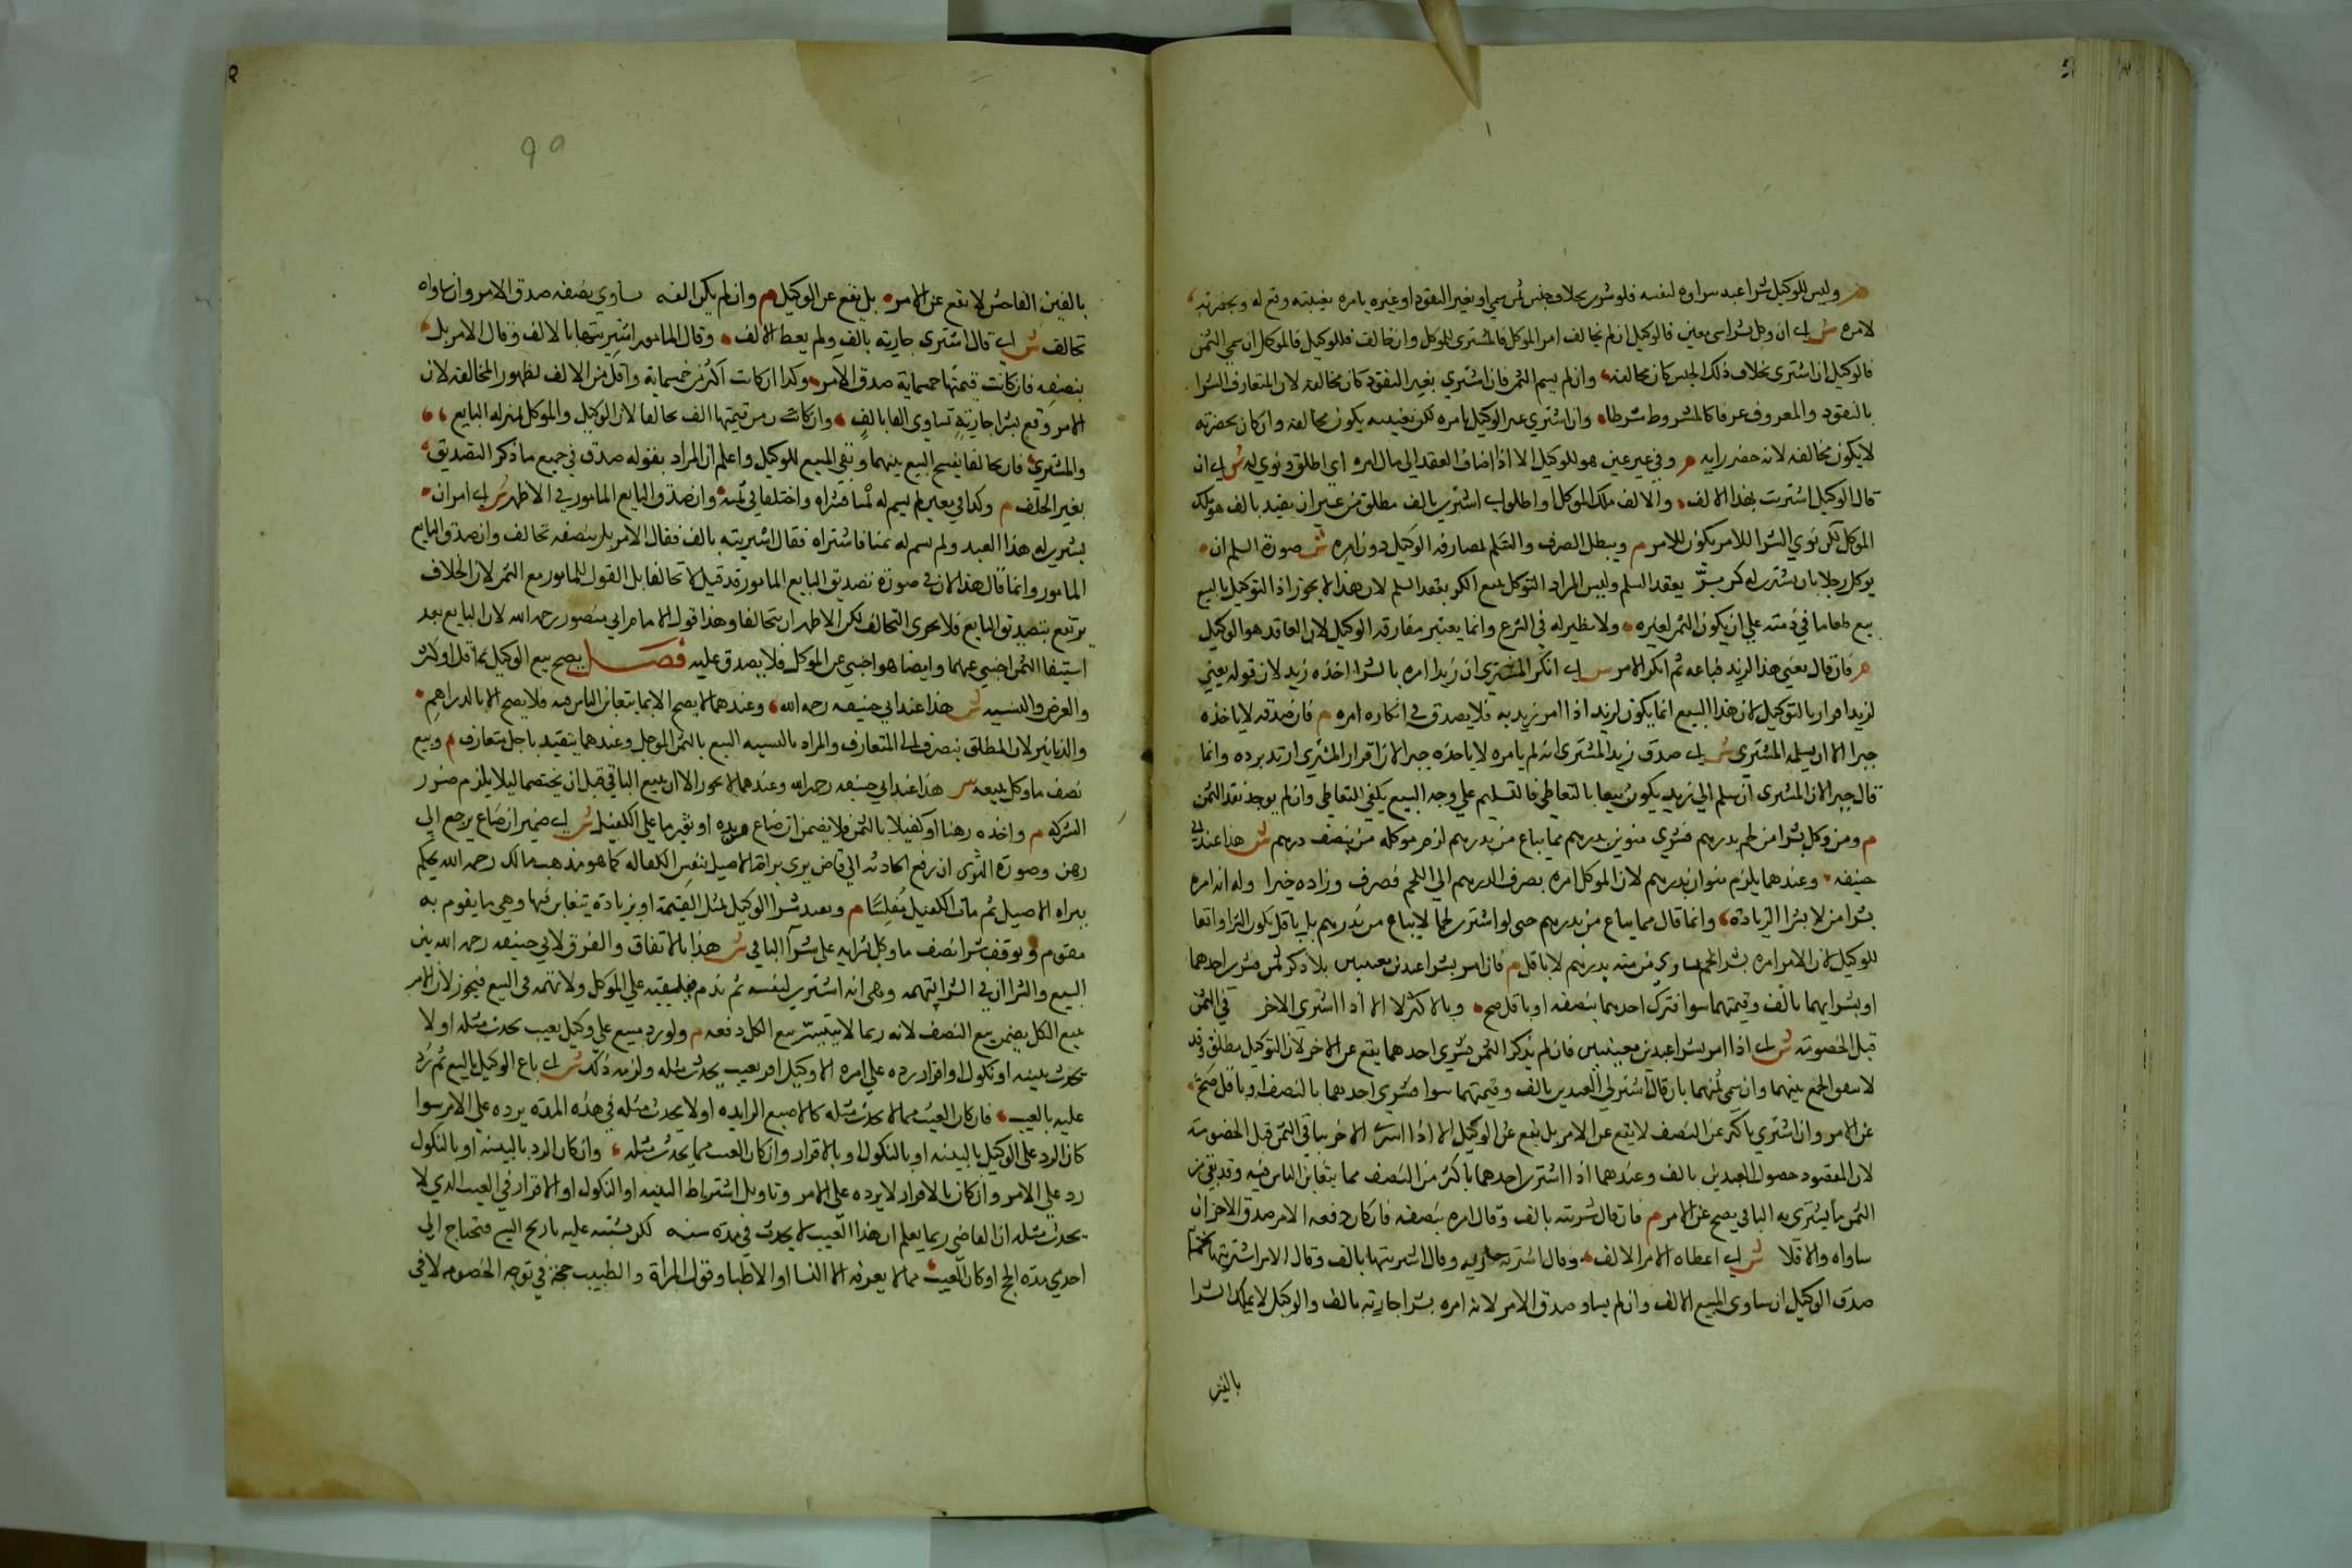 م وليس للوكيل شرا عبد شراوه لنفسه فلو شري بخلاف جنس ثمن سمي او بغير النقود او غيره بامره بغيبته وقع له وبحضرته
لامره ش اي ان وكل بشراء شي معين فالوكيل ان لم يخالف امر الموكل فالمشتري للموكل وان خالف فللوكيل فالموكل ان سمي الثمن
فالوكيل ان اشتري بخلاف ذلك الجنس كان مخالفه وان لم يسم الثمن فان اشتري بغير النقود كان مخالفه لان المتعارف الشرا
بالنقود والمعروف عرفا كالمشروط شرطا وان اشتري غير الوكيل بامره لكن بغيبته يكون مخالفه وان كان بحضرته
لا يكون مخالفه لانه حضر رايه م وفي غير عين هو للوكيل الا اذا اضاف العقد الي مال امره اي اطلق ونوي له ش اي ان
قال الوكيل اشتريت بهذا الالف والالف ملك الموكل او اطلق اي اشتري بالف مطلق من غير ان يقيد بالف هو ملك
الموكل لكن نوي الشرا للامر يكون للامر م ويبطل الصرف والسلم لمفارقه الوكيل دون امره ش صورة السلم ان
يوكل رجلا بان يشتري له كر بر بعقد السلم وليس المراد التوكل ببيع الكر بعقد السلم لان هذا لا يجوز اذ التوكيل بالبيع
بيع طعاما في ذمته علي ان يكون الثمن لغيره ولا نظير له في الشرع وانما يعتبر مفارقه الوكيل لان العاقد هو الوكيل
م فان قال بعني هذا لزيد فباعه ثم انكر الامر ش اي انكر المشتري ان زيدا امره بالشرا اخذه زيد لان قوله بعني
لزيد اقرار بالتوكيل لان هذا البيع انما يكون لزيد اذا امر زيد به فلا يصدق في انكاره امره م فان صدقه لا ياخذه
جبرا الا ان يسلمه المشتري ش اي صدق زيد المشتري انه لم يامره لا ياخذه جبرا لان اقرار المشتري ارتد برده وانما
قال جبرا لان المشتري ان سلم الي زيد يكون بيعا بالتعاطي فالتسليم علي وجه البيع يكفي للتعاطي وان لم يوجد نقد الثمن
م ومن وكل بشرا من لحم بدرهم فشري منوين بدرهم مما يباع من بدرهم لزم موكله من بنصف درهم ش هذا عند ابي
حنيفه وعندهما يلزم منوان بدرهم لان الموكل امره بصرف الدرهم الي اللحم فصرف وزاده خيرا وله انه امره
بشرا من لا بشرا الزيادة وانما قال مما يباع من بدرهم حتي لو اشتري لحما لا يباع من بدرهم بل باقل يكون الشرا واقعا
للوكيل لان الامر امره بشرا لحم يساوي من منه بدرهم لا باقل م فان امر بشرا عبدين معينين بلا ذكر ثمن فشري احدهما
او بشرايهما بالف وقيمتهما سوا فشري احدهما بنصفه او باقل صح وبالاكثر لا الا اذا اشتري الاخر في الثمن
قبل الخصومته ش اي اذا امر بشرا عبدين معينين فان لم يذكر الثمن فشري احدهما يقع عن الاخر لان التوكيل مطلق وقد
لا يتفق الجمع بينهما وان سمي ثمنهما بان قال اشتر لي العبدين بالف وقيمتهما سوا فشري احدهما بالنصف او باقل صح
عن الامر وان اشتري باكثر عن النصف لا يقع عن الامر بل يقع عن الوكيل الا اذا اشتري الاخر بباقي الثمن قبل الخصومته
لان المقصود حصول العبدين بالف وعندهما اذا اشتري احدهما باكثر من النصف مما يتغابن الناس فيه وقد بقي من
الثمن ما يشتري به الباقي يصح عن الامر م فان قال شريته بالف وقال امره بنصفه فان كان دفعه الامر صدق الاخر ان
ساواه والا فلا ش اي اعطاه الامر الالف وقال اشتر به جاريه وقال اشتريتها بالف وقال الامر اشتريتها
صدق الوكيل ان ساوي المبيع الالف وان لم يساو صدق الامر لانه امره بشرا جارته بالف والوكيل لا يملك الشرا
بالغبن
٩٥
بالغبن الفاحش لا يقع عن الامر بل يقع عن الوكيل م وان لم يكن الفه يساوي نصفه صدق الامر وان ساواه
تحالف ش اي قال اشتري جارية بالف ولم يعط الالف وقال المامور اشتريتها بالالف وقال الامر بل
بنصفه فان كانت قيمتها خمسماية صدق الامر وكذا ان كانت اكثر من خمسماية واقل من الالف لظهور المخالفه لان
الامر وقع بشرا جاريته تساوي الفا بالف وان كانت قيمتها الف تحالفا لان الوكيل والموكل بمنزله البايع
والمشتري فان تحالفا يفسخ البيع بينهما وبقي المبيع للوكيل واعلم ان المراد بقوله صدق في جميع ما ذكر التصديق
بغير الحلف م وكذا في معين لم يسم له ثمنا فشراه واختلفا في ثمنه وان صدق البايع المامور في الاظهر ش اي امر ان
يشتري له هذا العبد ولم يسم له ثمنا فاشتراه فقال اشتريته بالف فقال الامر بل بنصفه تحالف وان صدق البايع
المامور وانما قال هذا لان في صورة تصديق البايع المامور قد قيل لا تحالفا بل القول للمامور مع الثمن لان الخلاف
يرتفع بتصديق البايع فلا يجري التحالف لكن الاظهر ان يتحالفا وهذا قول الامام ابي منصور رحمه الله لان البايع بعد
استيفا الثمن اجنبي عنهما وايضا هو اجنبي عن الموكل فلا يصدق عليه فصل يصح بيع الوكيل بما قل او كثر
والعرض والنسيه ش هذا عند ابي حنيفه رحمه الله وعندهما لا يصح الا بما يتغابن الناس فيه فلا يصح الا بالدراهم
والدنانير لان المطلق ينصرف الي المتعارف والمراد بالنسيه البيع بالثمن الموجل وعندهما يتقيد باجل متعارف م وبيع
نصف ما وكل ببيعه ش هذا عند ابي حنيفه رحمه الله وعندهما لا يجوز الا ان يبيع الباقي قبل ان يختصما ليلا يلزم ضرر
الشركه م واخذه رهنا او كفيلا بالثمن فلا يضمن ان ضاع في يده او توي ما علي الكفيل ش اي ضمير ان ضاع يرجع الي
رهن وصورة التوي ان رفع الحادثه الي قاض يري براة الاصيل بنفس الكفاله كما هو مذهب مالك رحمه الله يحكم
ببراه الاصيل ثم مات الكفيل مفلسا م وبعد شرا الوكيل بمثل القيمة او بزيادة يتغابن فيها وهي ما يقوم به
مقوم و توقف شرا نصف ما وكل بشرايه علي شرآ الباقي ش هذا بالاتفاق والفرق لابي حنيفه رحمه الله بين
البيع والشرا ان في الشرا تهمه وهي انه اشتري لنفسه ثم ندم فيلقيه علي الموكل ولا تهمه في البيع فيجوز لان الامر
ببيع الكل يضمن بيع النصف لانه ربما لا يتيسر بيع الكل دفعه م ولو رد مبيع علي وكيل بعيب يحدث مثله او لا
يحدث ببينه او نكول او اقرار رده علي امره الا وكيل اقر بعيب يحدث مثله ولزمه ذلك ش اي باع الوكيل بالبيع ثم رد
عليه بالعيب فان كان العيب مما لا يحدث مثله كالاصبع الزايده او لا يحدث مثله في هذه المدة يرده علي الامر سوا
كان الرد علي الوكيل بالبينه او بالنكول او بالاقرار وان كان العيب مما يحدث مثله وان كان الرد بالبينه او بالنكول
رد علي الامر وان كان بالاقرار لا يرده علي الامر وتاويل اشتراط البينه او النكول او الاقرار في العيب الذي لا
يحدث مثله ان القاضي ربما يعلم ان هذا العيب لا يحدث في مدة سنه لكن يشتبه عليه تاريخ البيع فيحتاج الي
احدي هذه الحج او كان العيب مما لا يعرفه الا النسا او الاطبا وقول المراة والطبيب حجة في توجه الخصومه لا في